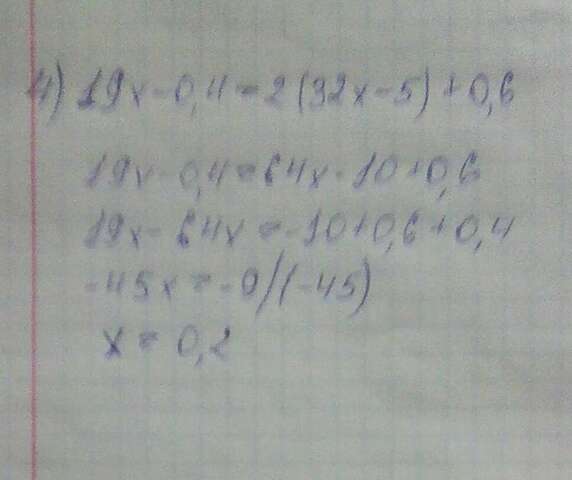 4) 19x-0,4=2(32x-5)+0,6
19x-0,4=64x-10+0,6
19x-64x=-10+0,6+0,4
-45x=-9/(-45)
x=0,2